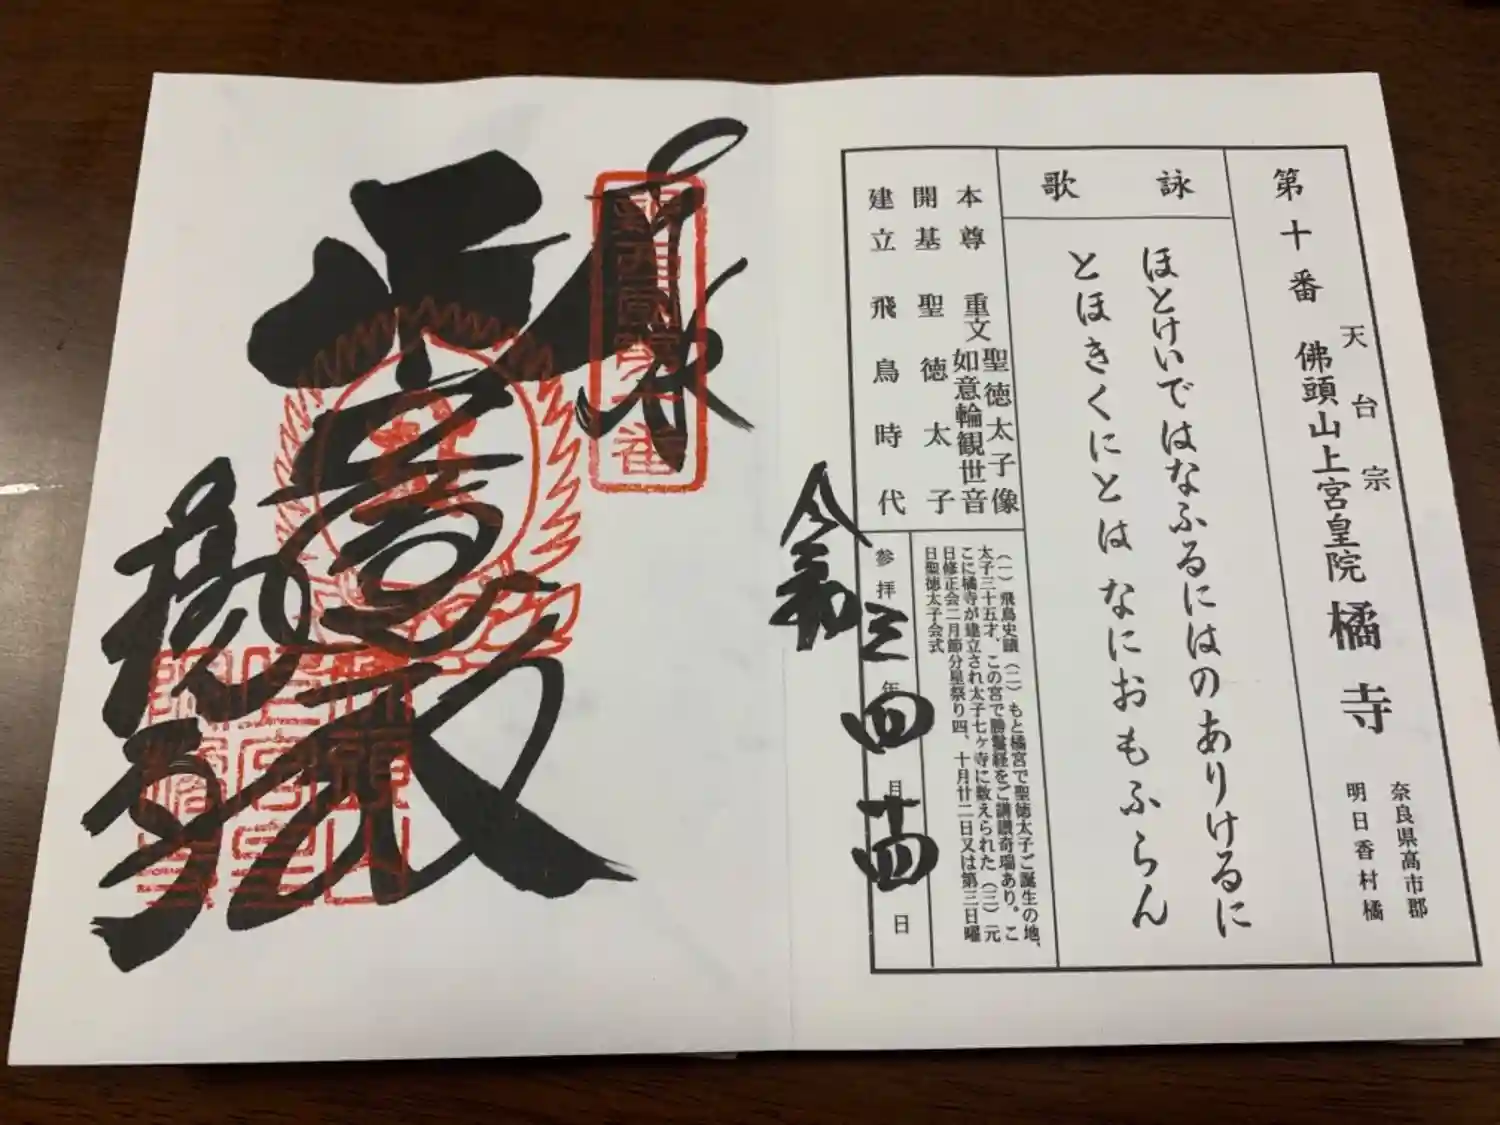 第十番
天台宗
佛頭山上宮皇院 橘寺
奈良県高市郡
明日香村橘
詠歌
ほとけいではなふるにはのありけるに
とほきくにとはなにおもふらん
本尊 重文 聖徳太子像
如意輪観世音
開基 聖徳太子
建立 飛鳥時代
(一)飛鳥史蹟(二)もと橘宮で聖徳太子ご誕生の地、
太子三十五才、この宮で勝鬘経をご講讃奇瑞あり。こ
こに橘寺が建立され太子七ヶ寺に数えられた(三)元
日修正会二月節分星祭り四、十月廿二日又は第三日曜
日聖徳太子会式
参拝 令和三年四月廿四日
奉拝
橘寺